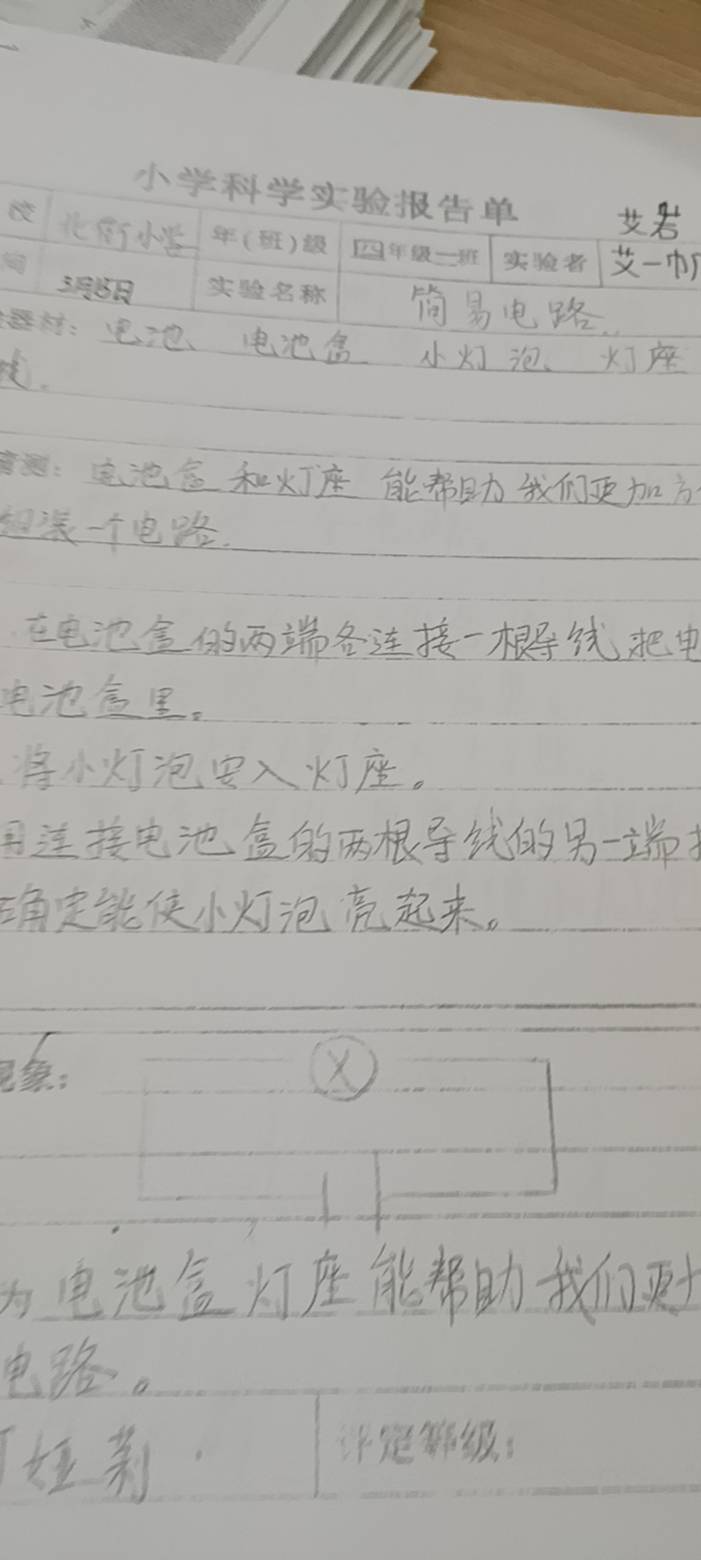 小学科学实验报告单
艾若
校 北街小学 年(班)级 四年级一班 实验者 艾一
间 3月15日 实验名称 简易电路
器材: 电池、电池盒 小灯泡、灯座
线.
猜测: 电池盒和灯座 能帮助我们更加方
组装一个电路.
在电池盒的两端各连接一根导线把电
电池盒里。
将小灯泡安入灯座。
用连接电池盒的两根导线的另一端
确定能使小灯泡亮起来。
现象:
为电池盒灯座能帮助我们更
电路。
评定等级: